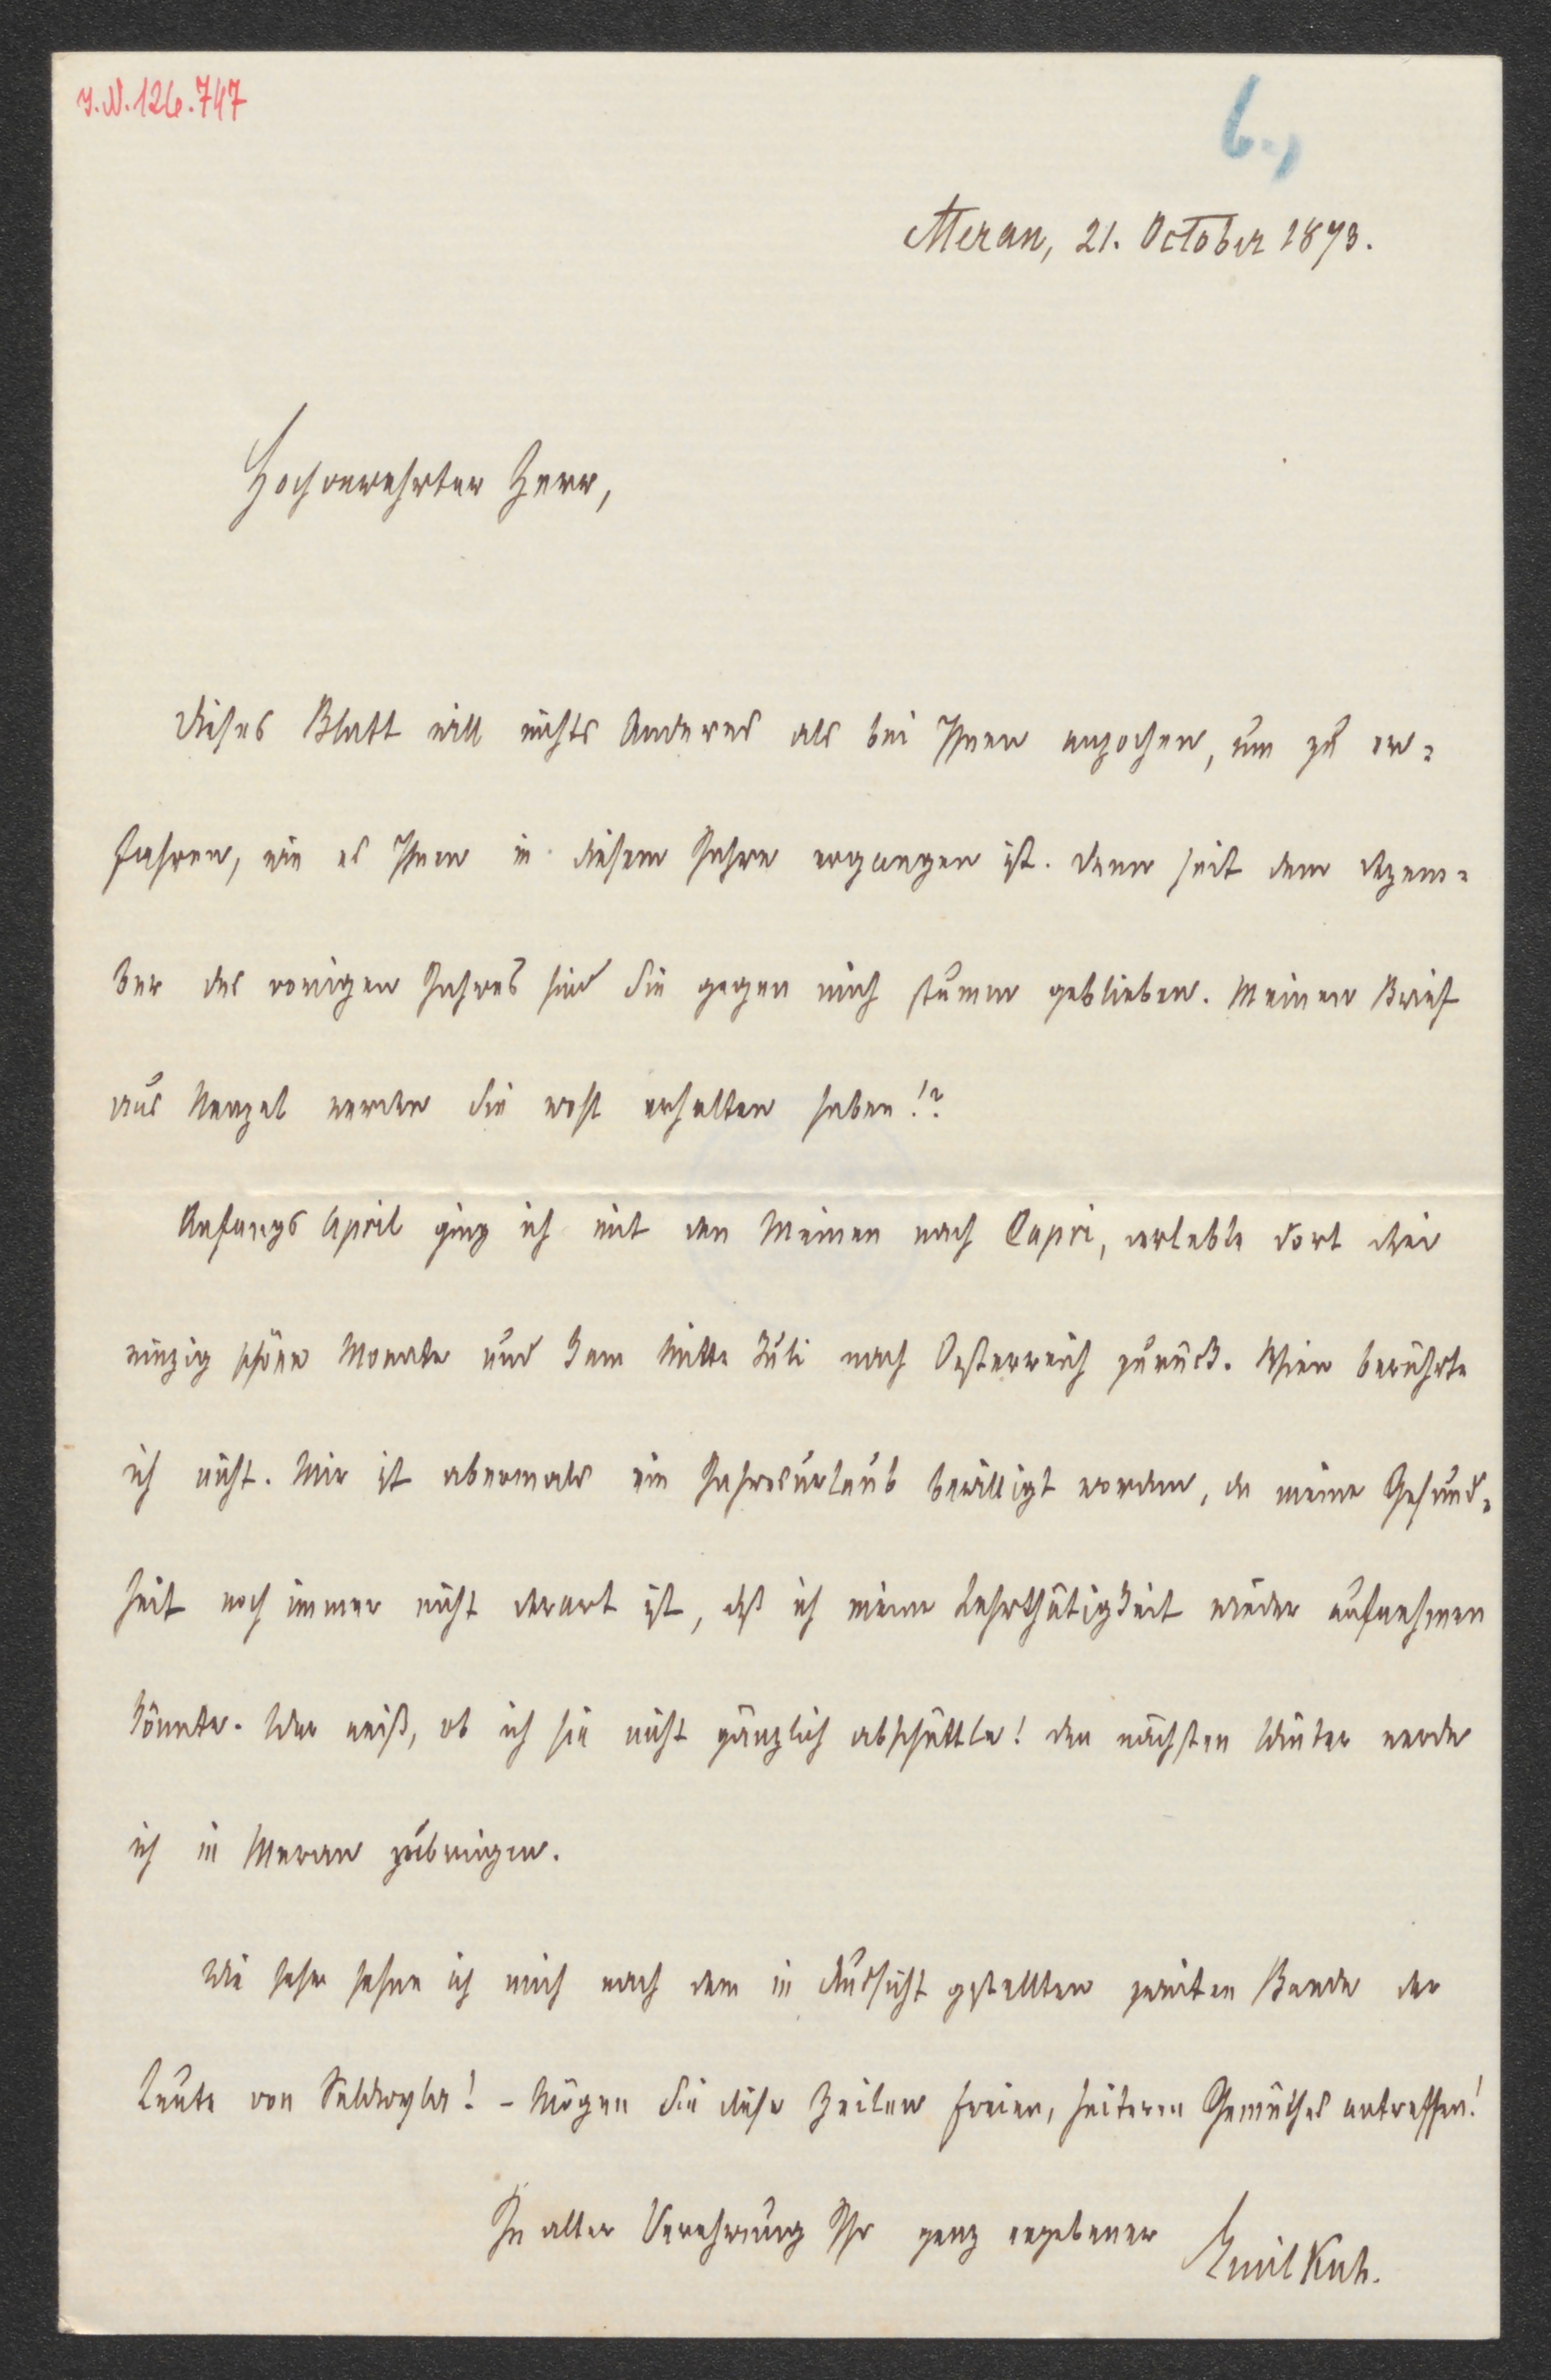 J.N. 126.747
6.,
Meran, 21. October 1873.
Hochverehrter Herr,
Dieses Blatt will nichts Anderes als bei Ihnen anpochen, um zu er=
fahren, wie es Ihnen in diesem Jahre ergangen ist. Denn seit dem Dezem=
ber des vorigen Jahres sind Sie gegen mich stumm geblieben. Meinen Brief
aus Neapel werden Sie wohl erhalten haben!?
Anfangs April ging ich mit den Meinen nach Capri, verlebte dort drei
einzig schöne Monate und kam Mitte Juli nach Oesterreich zurück. Wien berührte
ich nicht. Mir ist abermals ein Jahresurlaub bewilligt worden, da meine Gesund=
heit noch immer nicht derart ist, daß ich meine Lehrthätigkeit wieder aufnehmen
könnte. Wer weiß, ob ich sie nicht gänzlich abschüttle! Den nächsten Winter werde
ich in Meran zubringen.
Wie sehr sehne ich mich nach dem in Aussicht gestellten zweiten Bande der
Leute von Seldwyla! – Mögen Sie diese Zeilen freien, heiteren Gemüthes antreffen!
In alter Verehrung Ihr ganz ergebener Emil Kuh.